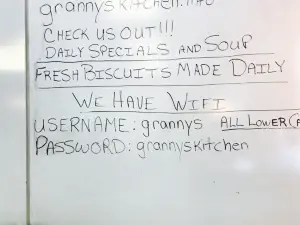 grannyskitchen.info
CHECK US OUT!!!
DAILY SPECIALS AND SOUP
FRESH BISCUITS MADE DAILY
WE HAVE WIFI
USERNAME: grannys ALL LOWER
PASSWORD: grannyskitchen